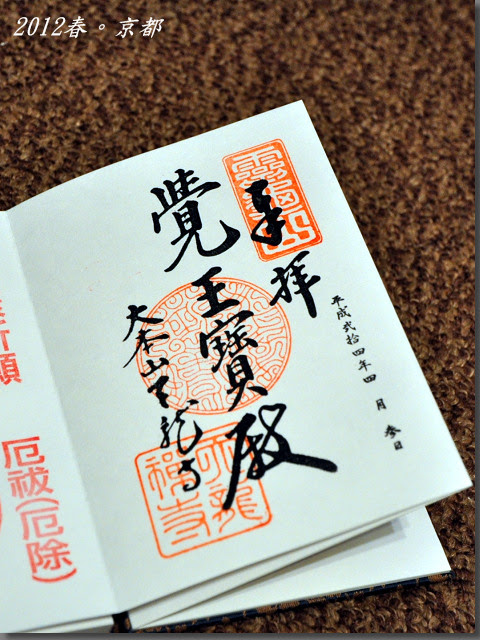 2012春。京都
奉拝
平成弐拾四年四月参日
覺王寶殿
大本山天龍寺
靈龜山
天龍禅寺
祈願
厄祓(厄除)